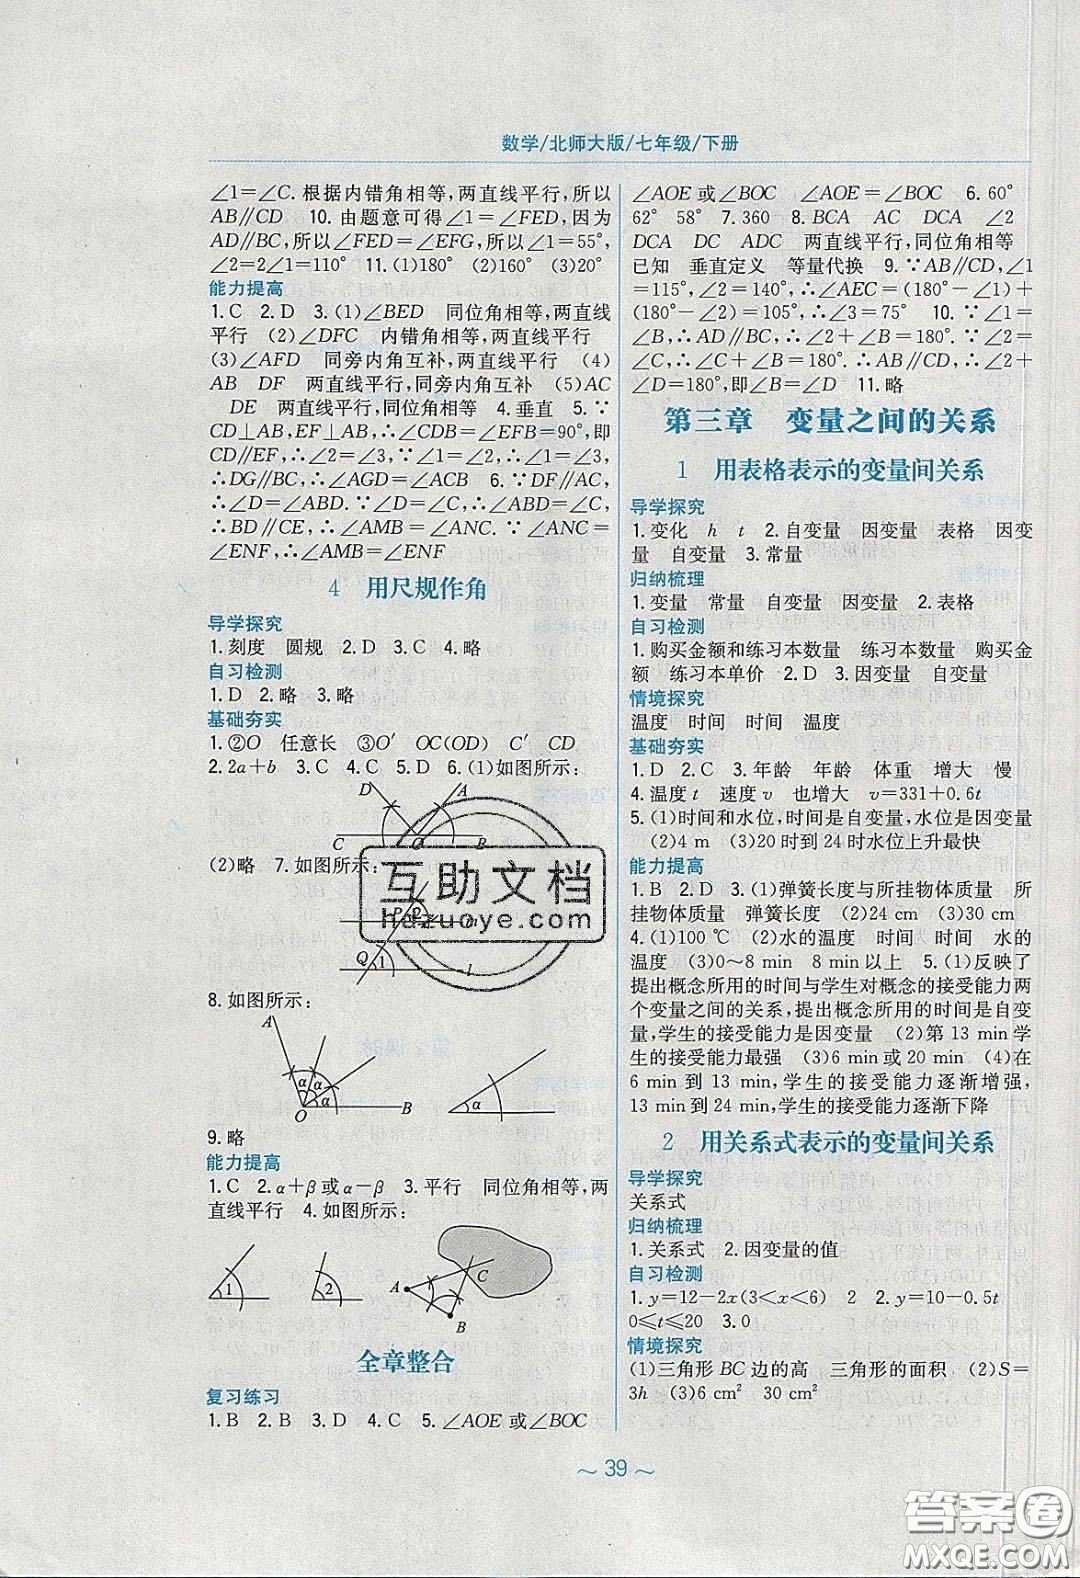 数学/北师大版/七年级/下册
∠1=∠C. 根据内错角相等,两直线平行,所以
AB∥CD 10. 由题意可得∠1=∠FED,因为
AD∥BC,所以∠FED=∠EFG,所以∠1=55°,
∠2=2∠1=110° 11.(1)180° (2)160° (3)20°
能力提高
1. C 2. D 3.(1)∠BED 同位角相等,两直线
平行 (2)∠DFC 内错角相等,两直线平行
(3)∠AFD 同旁内角互补,两直线平行 (4)
AB DF 两直线平行,同旁内角互补 (5)AC
DE 两直线平行,同位角相等 4. 垂直 5. ∵
CD⊥AB,EF⊥AB,∴∠CDB=∠EFB=90°,即
CD∥EF,∴∠2=∠3,∵∠1=∠2,∴∠1=∠3,
∴DG∥BC,∴∠AGD=∠ACB 6. ∵DF∥AC,
∴∠D=∠ABD. ∵∠C=∠D,∴∠C=∠ABD,
∴BD∥CE,∴∠AMB=∠ANC. ∵∠ANC=
∠ENF,∴∠AMB=∠ENF
4 用尺规作角
导学探究
1. 刻度 圆规 2. D 3. C 4. 略
自习检测
1. D 2. 略 3. 略
基础夯实
1. ②O 任意长 ③O′ OC(OD) C′ CD
2. 2a+b 3. C 4. C 5. D 6.(1)如图所示:
D A
C O B
(2)略 7. 如图所示:
P 2
Q 1 l
8. 如图所示:
A
α α α
O B
α
9. 略
能力提高
1. C 2. α+β或α-β 3. 平行 同位角相等,两
直线平行 4. 如图所示:
1 2 A C
B
全章整合
复习练习
1. B 2. B 3. D 4. C 5. ∠AOE 或∠BOC
∠AOE 或∠BOC ∠AOE=∠BOC 6. 60°
62° 58° 7. 360 8. BCA AC DCA ∠2
DCA DC ADC 两直线平行,同位角相等
已知 垂直定义 等量代换 9. ∵AB∥CD,∠1
=115°,∠2=140°,∴∠AEC=(180°-∠1)+
(180°-∠2)=105°,∴∠3=75° 10. ∵∠1=
∠B,∴AD∥BC,∴∠2+∠B=180°. ∵∠2=
∠C,∴∠C+∠B=180°. ∴AB∥CD,∴∠2+
∠D=180°,即∠B=∠D 11. 略
第三章 变量之间的关系
1 用表格表示的变量间关系
导学探究
1. 变化 h t 2. 自变量 因变量 表格 因变
量 自变量 3. 常量
归纳梳理
1. 变量 常量 自变量 因变量 2. 表格
自习检测
1. 购买金额和练习本数量 练习本数量 购买金
额 练习本单价 2. D 3. 因变量 自变量
情境探究
温度 时间 时间 温度
基础夯实
1. D 2. C 3. 年龄 年龄 体重 增大 慢
4. 温度 t 速度 v 也增大 v=331+0.6t
5.(1)时间和水位,时间是自变量,水位是因变量
(2)4 m (3)20 时到 24 时水位上升最快
能力提高
1. B 2. D 3.(1)弹簧长度与所挂物体质量 所
挂物体质量 弹簧长度 (2)24 cm (3)30 cm
4.(1)100 ℃ (2)水的温度 时间 时间 水的
温度 (3)0~8 min 8 min 以上 5.(1)反映了
提出概念所用的时间与学生对概念的接受能力两
个变量之间的关系,提出概念所用的时间是自变
量,学生的接受能力是因变量 (2)第 13 min 学
生的接受能力最强 (3)6 min 或 20 min (4)在
6 min 到 13 min,学生的接受能力逐渐增强,
13 min 到 24 min,学生的接受能力逐渐下降
2 用关系式表示的变量间关系
导学探究
关系式
归纳梳理
1. 关系式 2. 因变量的值
自习检测
1. y=12-2x(3<x<6) 2 2. y=10-0.5t
0≤t≤20 3. 0
情境探究
(1)三角形 BC 边的高 三角形的面积 (2)S=
3h (3)6 cm² 30 cm²
~ 39 ~
互助文档
hdzuoye.com
答案圈
MXQE.COM